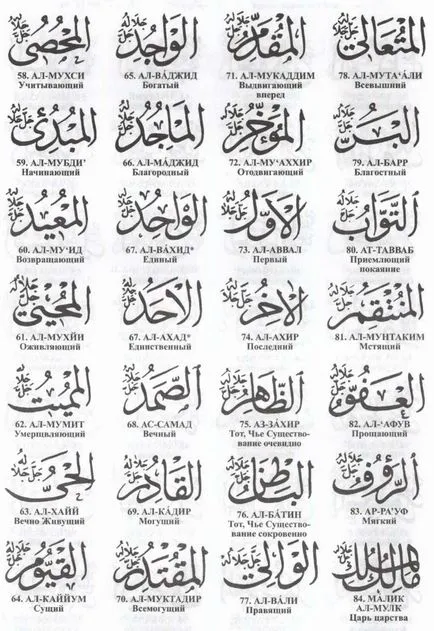 المحصى جل جلاله
58. АЛ-МУХСИ
Учитывающий
المبدئ جل جلاله
59. АЛ-МУБДИ’
Начинающий
المعيد جل جلاله
60. АЛ-МУ‘ИД
Возвращающий
المحيي جل جلاله
61. АЛ-МУХЙИ
Оживляющий
المميت جل جلاله
62. АЛ-МУМИТ
Умерщвляющий
الحى جل جلاله
63. АЛ-ХАЙЙ
Вечно Живущий
القيوم جل جلاله
64. АЛ-КАЙЙУМ
Сущий
الواجد جل جلاله
65. АЛ-ВА́ДЖИД
Богатый
الماجد جل جلاله
66. АЛ-МА́ДЖИД
Благородный
الواحد جل جلاله
67. АЛ-ВА́ХИД*
Единый
الأحد جل جلاله
67. АЛ-АХАД*
Единственный
الصمد جل جلاله
68. АС-САМАД
Вечный
القادر جل جلاله
69. АЛ-КА́ДИР
Могущий
المقتدر جل جلاله
70. АЛ-МУКТАДИР
Всемогущий
المقدم جل جلاله
71. АЛ-МУКАДДИМ
Выдвигающий
вперед
المؤخر جل جلاله
72. АЛ-МУ‘АХХИР
Отодвигающий
الأول جل جلاله
73. АЛ-АВВАЛ
Первый
الآخر جل جلاله
74. АЛ-АХИР
Последний
الظاهر جل جلاله
75. АЗ-ЗА́ХИР
Тот, Чье Существо-
вание очевидно
الباطن جل جلاله
76. АЛ-БА́ТИН
Тот, Чье Существо-
вание сокровенно
الوالي جل جلاله
77. АЛ-ВА́ЛИ
Правящий
المتعالي جل جلاله
78. АЛ-МУТА‘А́ЛИ
Всевышний
البر جل جلاله
79. АЛ-БАРР
Благостный
التواب جل جلاله
80. АТ-ТАВВАБ
Приемлющий
покаяние
المنتقم جل جلاله
81. АЛ-МУНТАКИМ
Мстящий
العفو جل جلاله
82. АЛ-‘АФУВ
Прощающий
الرؤف جل جلاله
83. АР-РА’УФ
Мягкий
مالك الملك جل جلاله
84. МА́ЛИК
АЛ-МУЛК
Царь царства